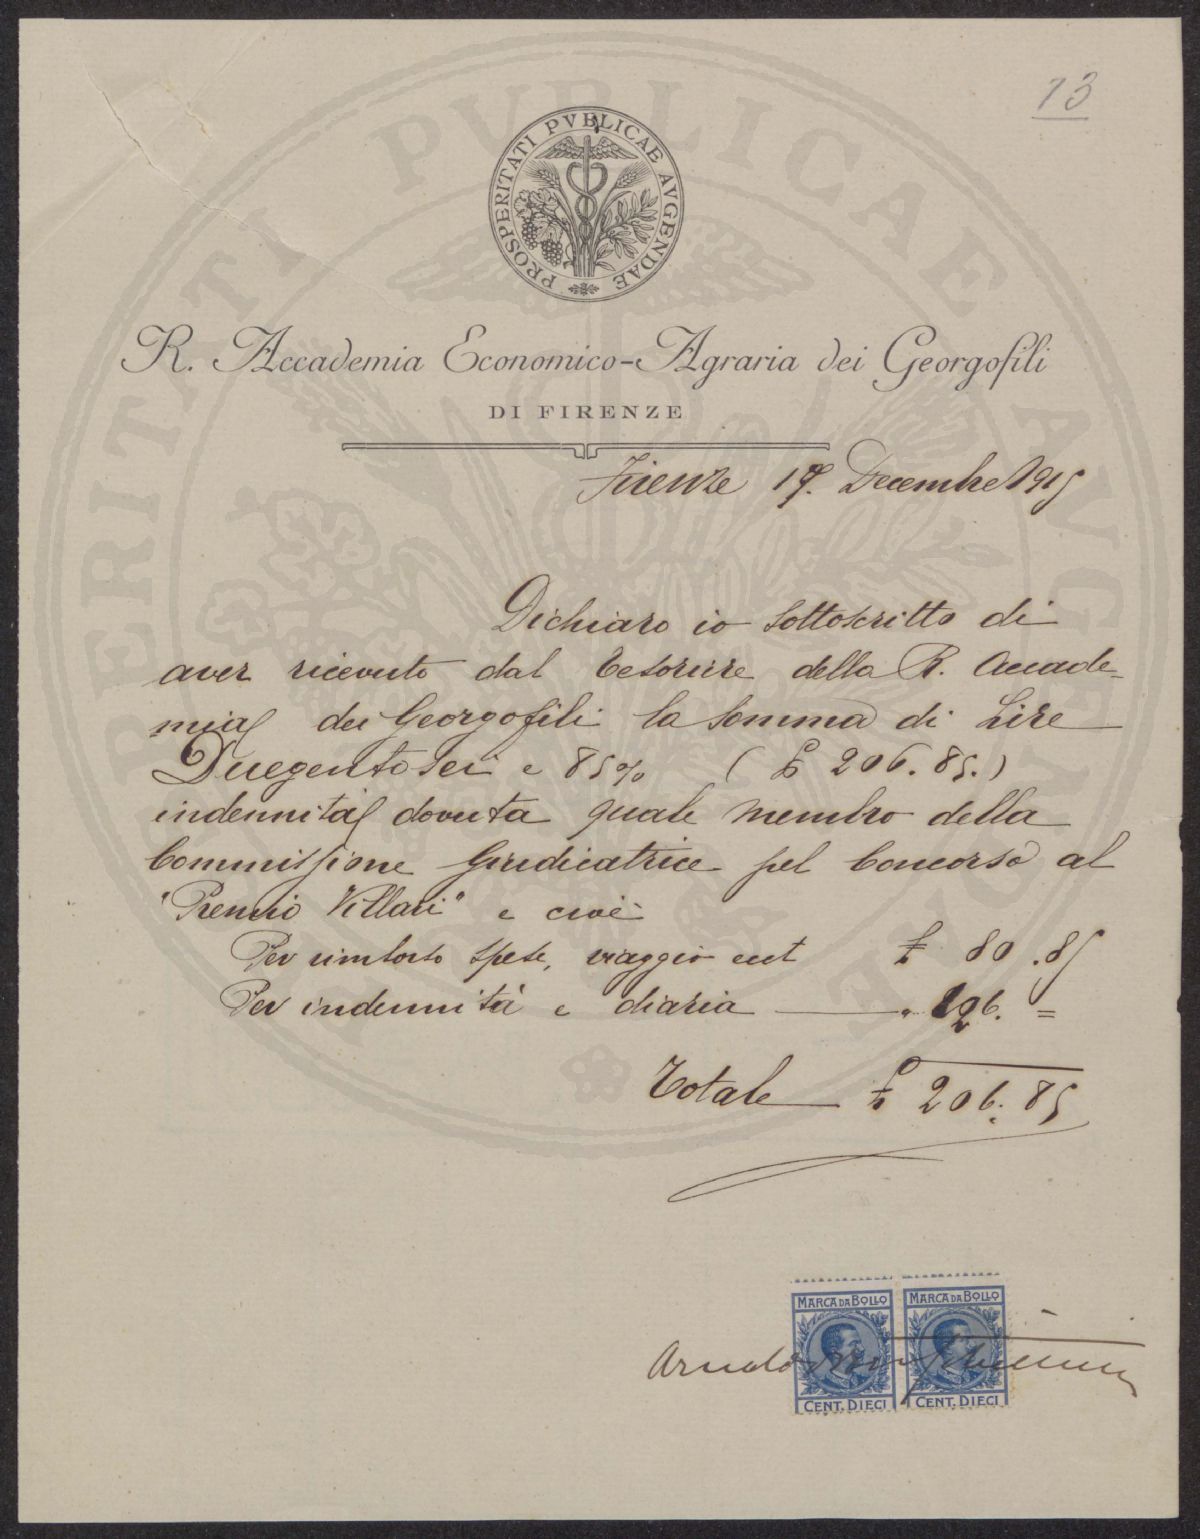 13
PROSPERITATI PVBLICAE AVGENDAE
R. Accademia Economico-Agraria dei Georgofili
DI FIRENZE
Firenze 17. Decembre 1915
Dichiaro io sottoscritto di
aver ricevuto dal Tesoriere della R. Accade-
mia dei Georgofili la somma di Lire
Duegentosei e 85% (£ 206.85.)
indennità dovuta quale membro della
Commissione Giudicatrice pel Concorso al
"Premio Villari" e cioè:
Per rimborso spese, viaggio ecct £ 80.85
Per indennità e diaria — " 126. =
Totale — £ 206.85
MARCA DA BOLLO MARCA DA BOLLO
Arnaldo
CENT. DIECI CENT. DIECI